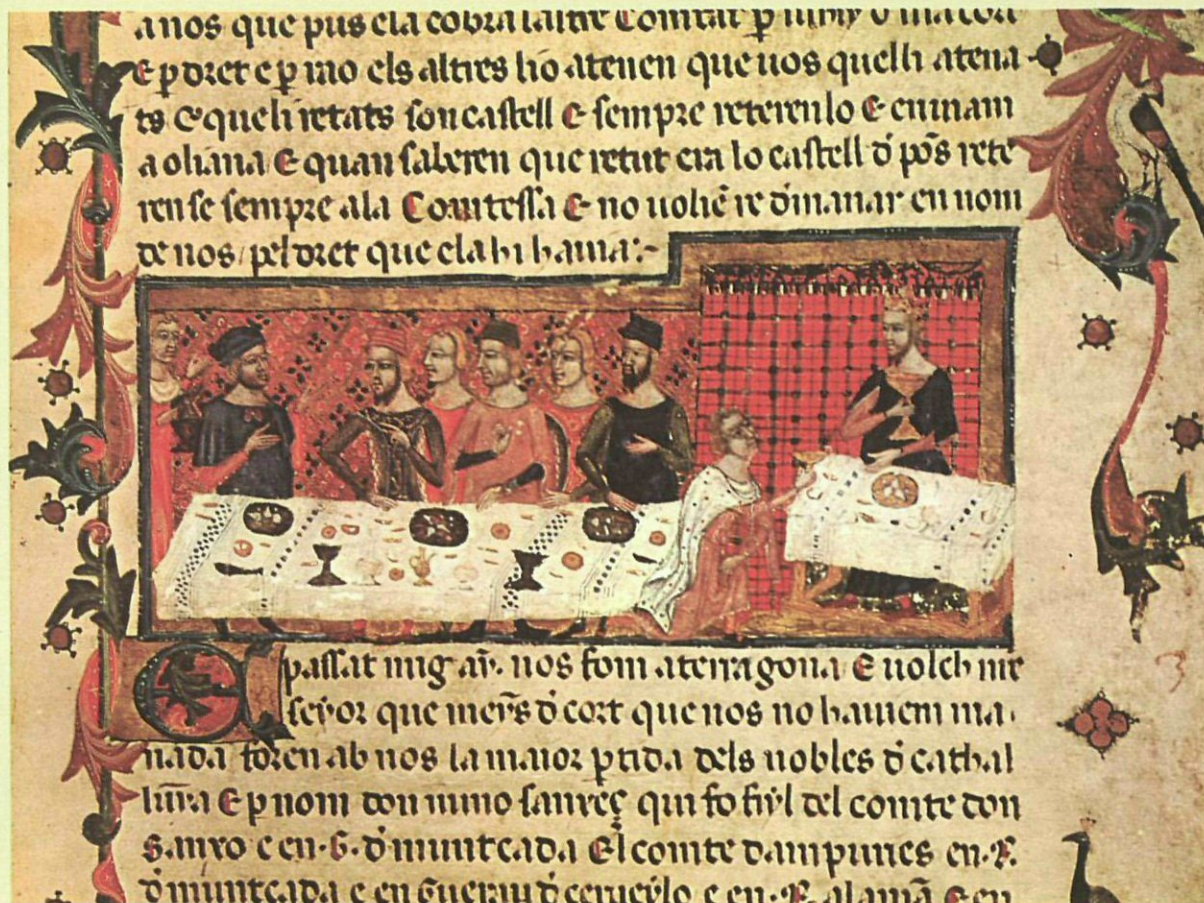 a nos que pus ela cobra laltre Comtat
E p dret e p rao els altres ho atenen que uos quelh atena
ts E queli retats son castell E sempre reterenlo E enuiam
a oliana E quan saberen que retut era lo castell d pōs rete
ren se sempre ala Comtessa E no uoliē re dmanar en nom
de nos pel dret que ela hi hauia :~
E passat mig ay. nos fom a terragona E uolch nre
seyor que meys d cort que nos no hauiem ma
nada foren ab nos la maior ptida dels nobles d cathal
lunya E p nom don nuno sanxeç qui fo fiyl del comte don
Sanxo e en .G. d muntcada El comte dampuries en .R.
d muntcada e en Gueraud cerueylo e en .R. alamā E en